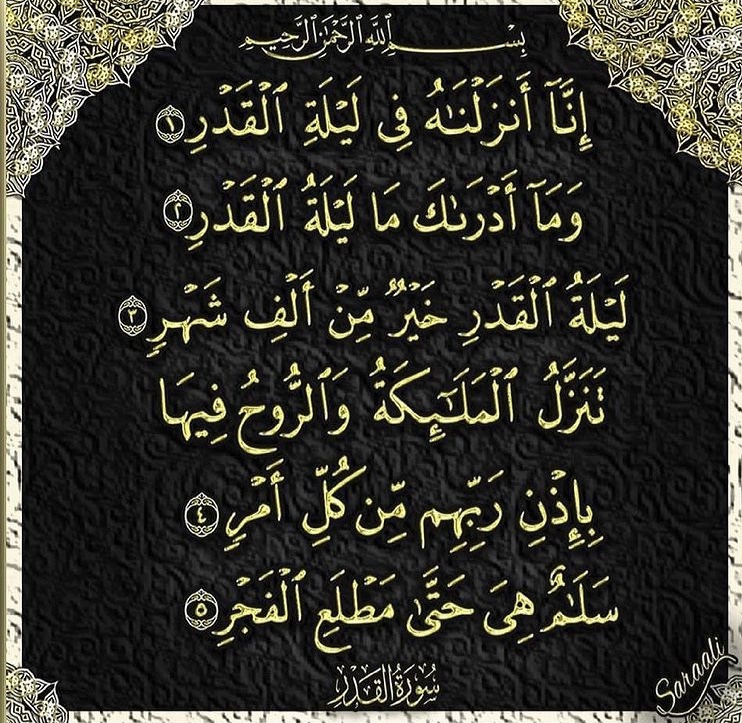 بِسْمِ ٱللَّهِ ٱلرَّحْمَٰنِ ٱلرَّحِيمِ
إِنَّآ أَنزَلْنَٰهُ فِى لَيْلَةِ ٱلْقَدْرِ ١
وَمَآ أَدْرَىٰكَ مَا لَيْلَةُ ٱلْقَدْرِ ٢
لَيْلَةُ ٱلْقَدْرِ خَيْرٌ مِّنْ أَلْفِ شَهْرٍ ٣
تَنَزَّلُ ٱلْمَلَٰٓئِكَةُ وَٱلرُّوحُ فِيهَا
بِإِذْنِ رَبِّهِم مِّن كُلِّ أَمْرٍ ٤
سَلَٰمٌ هِىَ حَتَّىٰ مَطْلَعِ ٱلْفَجْرِ ٥
سُورَةُ القَدْرِ
Saraali